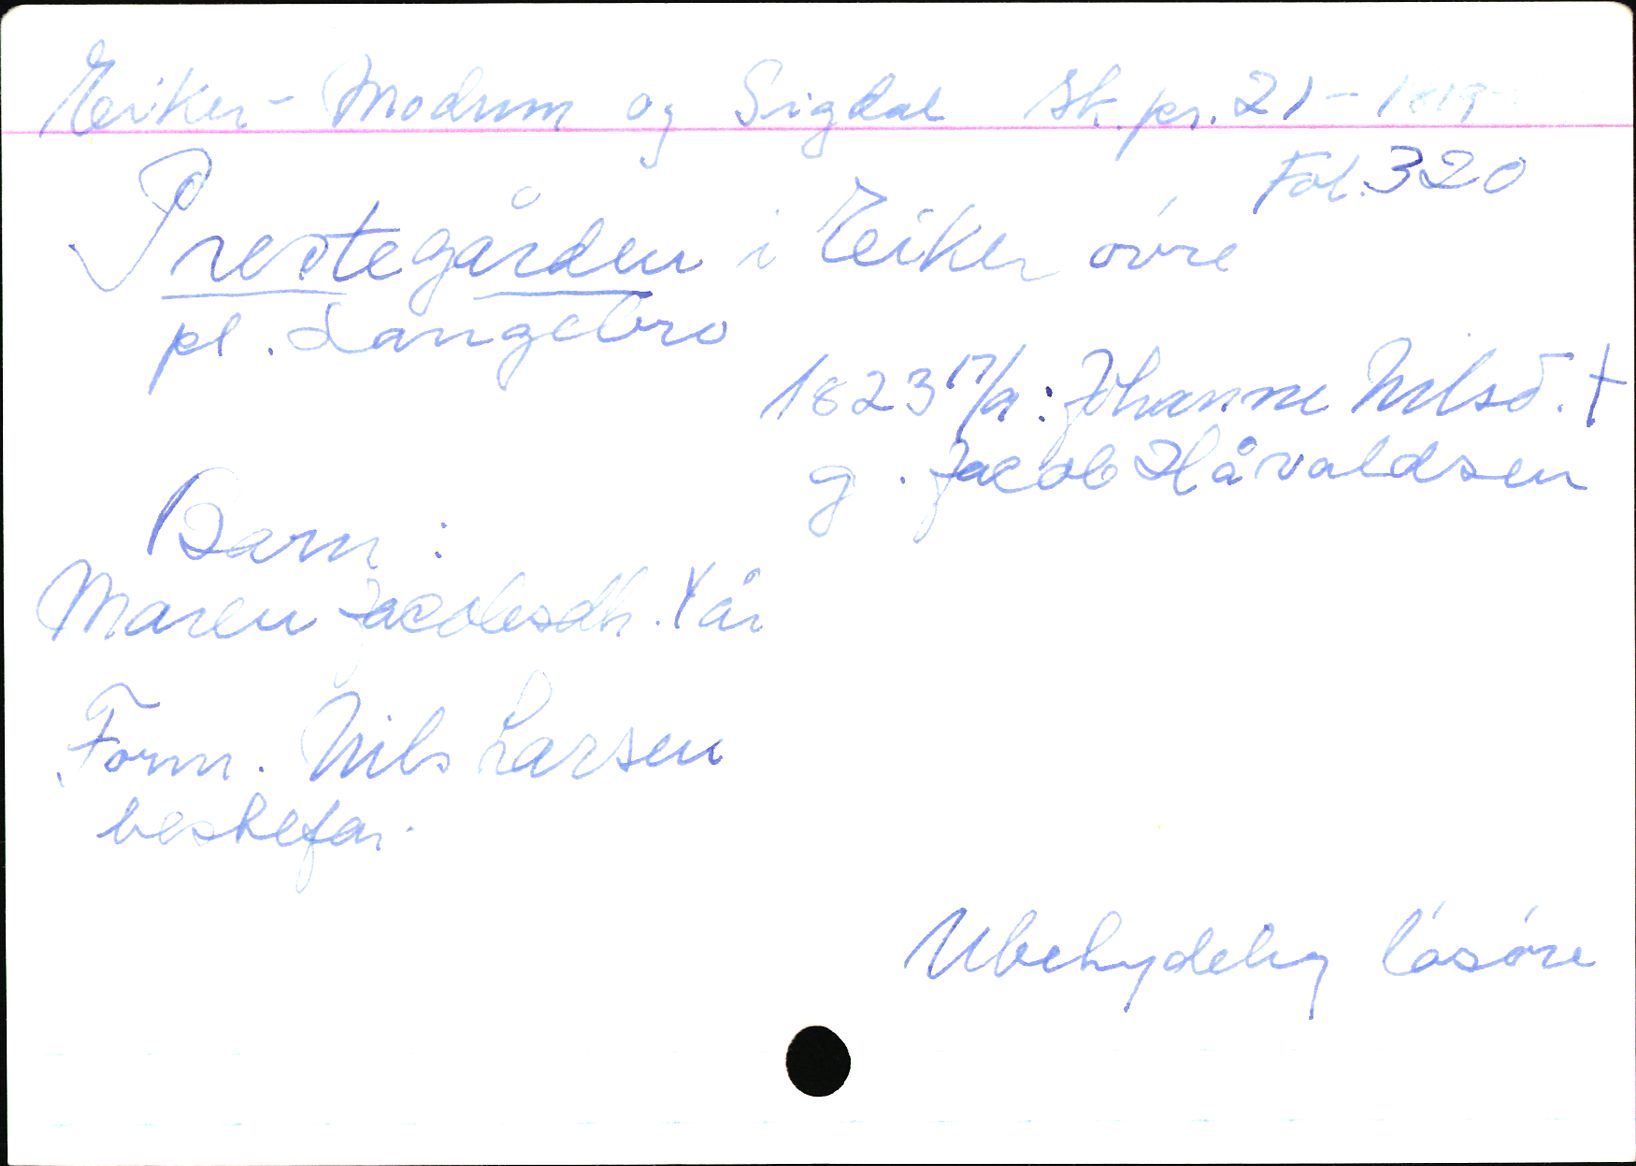 Eiker - Modum og Sigdal sk.pr. 21 - 1819 -
Fol. 320
Prestegården i Eiker øvre
pl. Langebro
1823 17/9: Johanne Nilsd. †
g. Jacob Håvaldsen
Barn:
Maren Jacobsdtr. år
Form. Nils Larsen
bestefar.
Ubetydelig løsøre